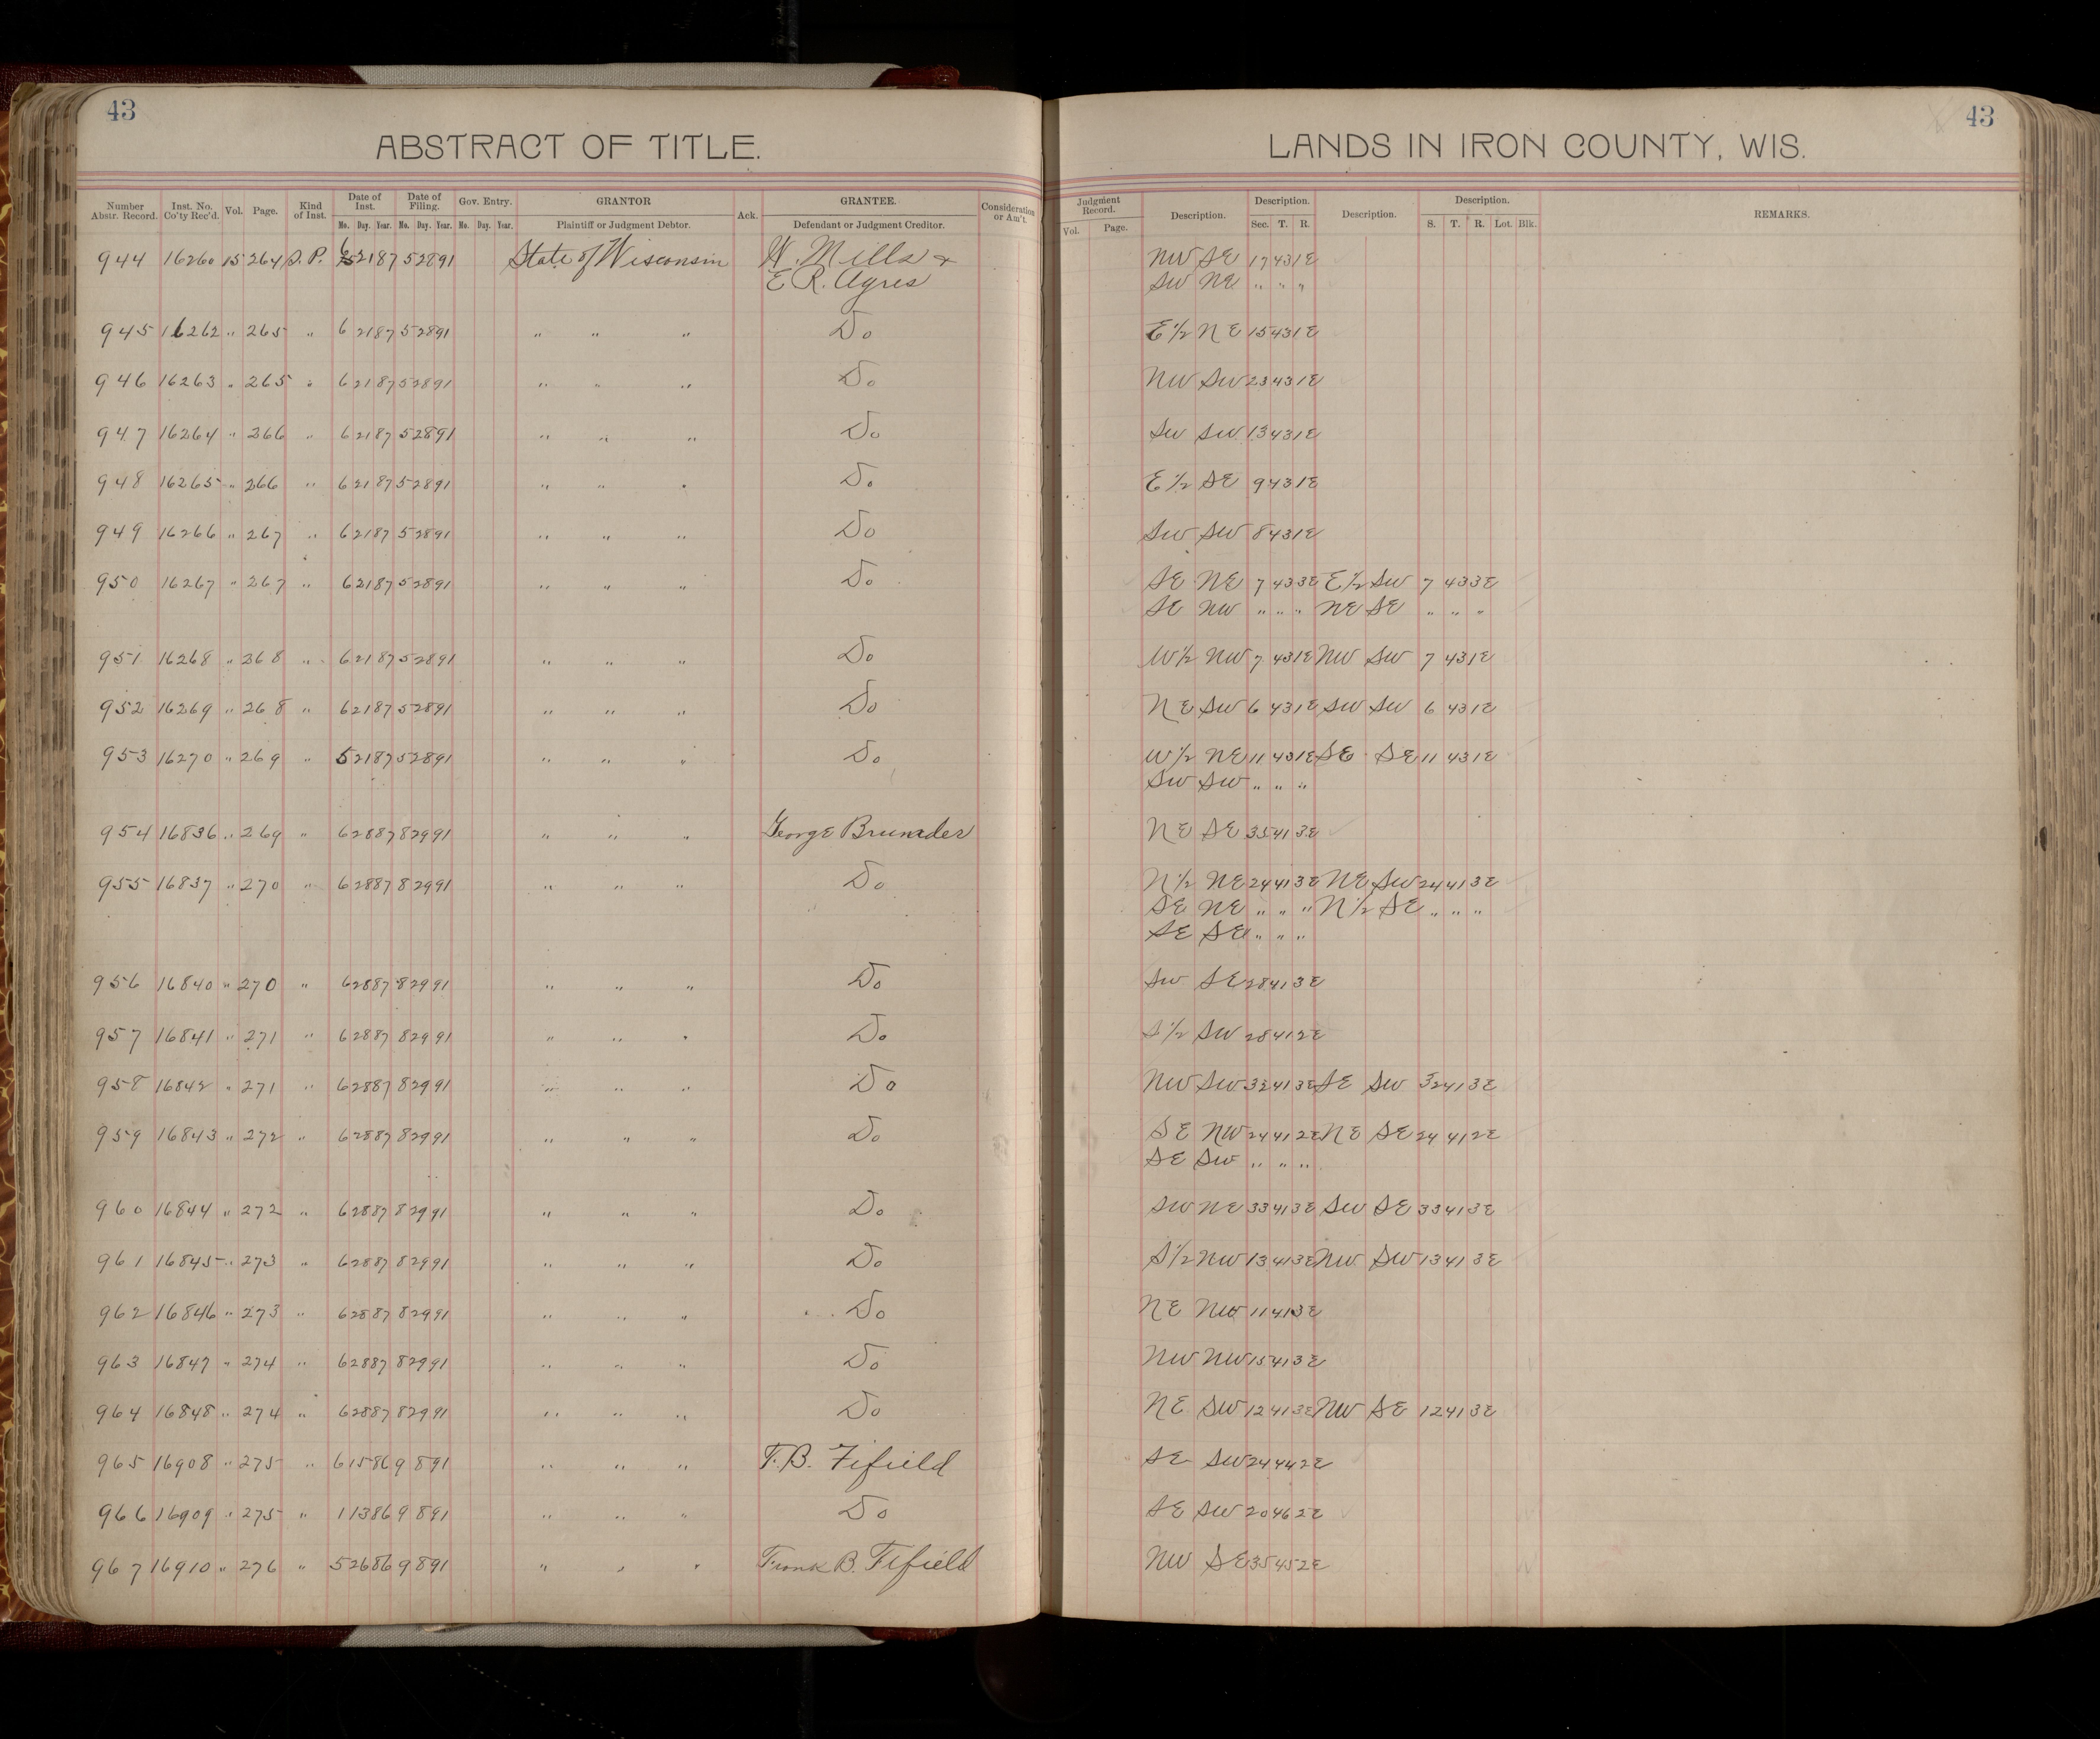 43
ABSTRACT OF TITLE.
Number Abstr. Record. Inst. No. Co'ty Rec'd. Vol. Page. Kind of Inst. Date of Inst. Mo. Day. Year. Date of Filing. Mo. Day. Year. Gov. Entry. Mo. Day. Year. GRANTOR Plaintiff or Judgment Debtor. Ack. GRANTEE. Defendant or Judgment Creditor. Consideration or Am't.
43
LANDS IN IRON COUNTY, WIS.
Judgment Record. Vol. Page. Description. Description. Sec. T. R. Description. Description. S. T. R. Lot. Blk. REMARKS.
944 16260 15 264 S.P. 6 21 87 5 28 91 State of Wisconsin W. Mills & NW SE 17 43 1E
E R. Ayres SW NE " " "
945 16262 " 265 " 6 21 87 5 28 91 " " " Do E 1/2 NE 15 43 1E
946 16263 " 265 " 6 21 87 5 28 91 " " " Do NW SW 23 43 1E
947 16264 " 266 " 6 21 87 5 28 91 " " " Do SW SW 13 43 1E
948 16265 " 266 " 6 21 87 5 28 91 " " " Do E 1/2 SE 9 43 1E
949 16266 " 267 " 6 21 87 5 28 91 " " " Do SW SW 8 43 1E
950 16267 " 267 " 6 21 87 5 28 91 " " " Do SE NE 7 43 3E E 1/2 SW 7 43 3E
SE NW " " " NE SE " " "
951 16268 " 268 " 6 21 87 5 28 91 " " " Do W 1/2 NW 7 43 1E NW SW 7 43 1E
952 16269 " 268 " 6 21 87 5 28 91 " " " Do NE SW 6 43 1E SW SW 6 43 1E
953 16270 " 269 " 5 21 87 5 28 91 " " " Do W 1/2 NE 11 43 1E SE SE 11 43 1E
SW SW " " "
954 16836 " 269 " 6 28 87 8 29 91 " " " George Brunader NE SE 35 41 3E
955 16837 " 270 " 6 28 87 8 29 91 " " " Do N 1/2 NE 24 41 3E NE SW 24 41 3E
SE NE " " " N 1/2 SE " " "
SE SE " " "
956 16840 " 270 " 6 28 87 8 29 91 " " " Do SW SE 28 41 3E
957 16841 " 271 " 6 28 87 8 29 91 " " " Do S 1/2 SW 28 41 2E
958 16842 " 271 " 6 28 87 8 29 91 " " " Do NW SW 32 41 3E SE SW 32 41 3E
959 16843 " 272 " 6 28 87 8 29 91 " " " Do SE NW 24 41 2E NE SE 24 41 2E
SE SW " " "
960 16844 " 272 " 6 28 87 8 29 91 " " " Do SW NE 33 41 3E SW SE 33 41 3E
961 16845 " 273 " 6 28 87 8 29 91 " " " Do S 1/2 NW 13 41 3E NW SW 13 41 3E
962 16846 " 273 " 6 28 87 8 29 91 " " " Do NE NW 11 41 3E
963 16847 " 274 " 6 28 87 8 29 91 " " " Do NW NW 15 41 3E
964 16848 " 274 " 6 28 87 8 29 91 " " " Do NE SW 12 41 3E NW SE 12 41 3E
965 16908 " 275 " 6 15 86 9 8 91 " " " F.B. Fifield SE SW 24 44 2E
966 16909 " 275 " 1 13 86 9 8 91 " " " Do SE SW 20 46 2E
967 16910 " 276 " 5 26 86 9 8 91 " " " Frank B. Fifield NW SE 35 45 2E